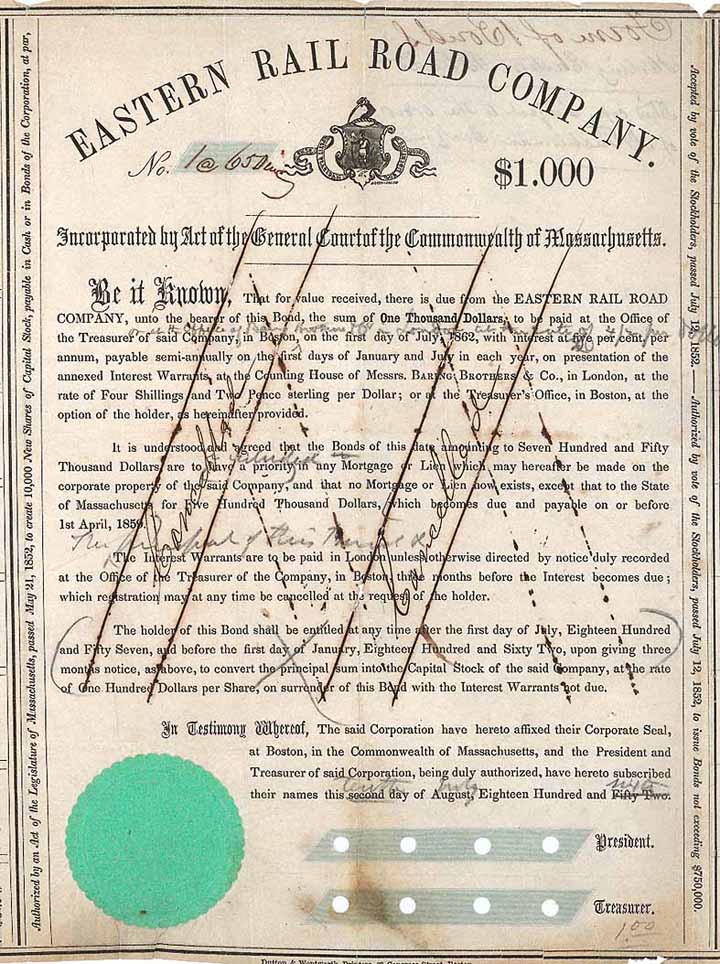 EASTERN RAIL ROAD COMPANY.
No. 1@65
$1.000
Incorporated by Act of the General Court of the Commonwealth of Massachusetts.
Be it Known, That for value received, there is due from the EASTERN RAIL ROAD
COMPANY, unto the bearer of this Bond, the sum of One Thousand Dollars, to be paid at the Office of
the Treasurer of said Company, in Boston, on the first day of July, 1862, with interest at five per cent, per
annum, payable semi-annually on the first days of January and July in each year, on presentation of the
annexed Interest Warrants, at the Counting House of Messrs. BARING BROTHERS & Co., in London, at the
rate of Four Shillings and Two Pence sterling per Dollar; or at the Treasurer's Office, in Boston, at the
option of the holder, as hereinafter provided.
It is understood and agreed that the Bonds of this date amounting to Seven Hundred and Fifty
Thousand Dollars, are to have a priority in any Mortgage or Lien which may hereafter be made on the
corporate property of the said Company, and that no Mortgage or Lien now exists, except that to the State
of Massachusetts for Five Hundred Thousand Dollars, which becomes due and payable on or before
1st April, 1859.
The principal of this
The Interest Warrants are to be paid in London unless otherwise directed by notice duly recorded
at the Office of the Treasurer of the Company, in Boston, three months before the Interest becomes due;
which registration may at any time be cancelled at the request of the holder.
Cancelled
Cancelled
The holder of this Bond shall be entitled at any time after the first day of July, Eighteen Hundred
and Fifty Seven, and before the first day of January, Eighteen Hundred and Sixty Two, upon giving three
months notice, as above, to convert the principal sum into the Capital Stock of the said Company, at the rate
of One Hundred Dollars per Share, on surrender of this Bond with the Interest Warrants not due.
In Testimony Whereof, The said Corporation have hereto affixed their Corporate Seal,
at Boston, in the Commonwealth of Massachusetts, and the President and
Treasurer of said Corporation, being duly authorized, have hereto subscribed
tenth July sixty
their names this second day of August, Eighteen Hundred and Fifty Two.
President.
Treasurer.
1.00
Authorized by an Act of the Legislature of Massachusetts, passed May 21, 1852, to create 10,000 New Shares of Capital Stock, payable in Cash or in Bonds of the Corporation, at par,
Accepted by vote of the Stockholders, passed July 12, 1852. — Authorized by vote of the Stockholders, passed July 12, 1852, to issue Bonds not exceeding $750,000.
Form of Bond
Dutton & Wentworth, Printers, 37 Congress Street, Boston